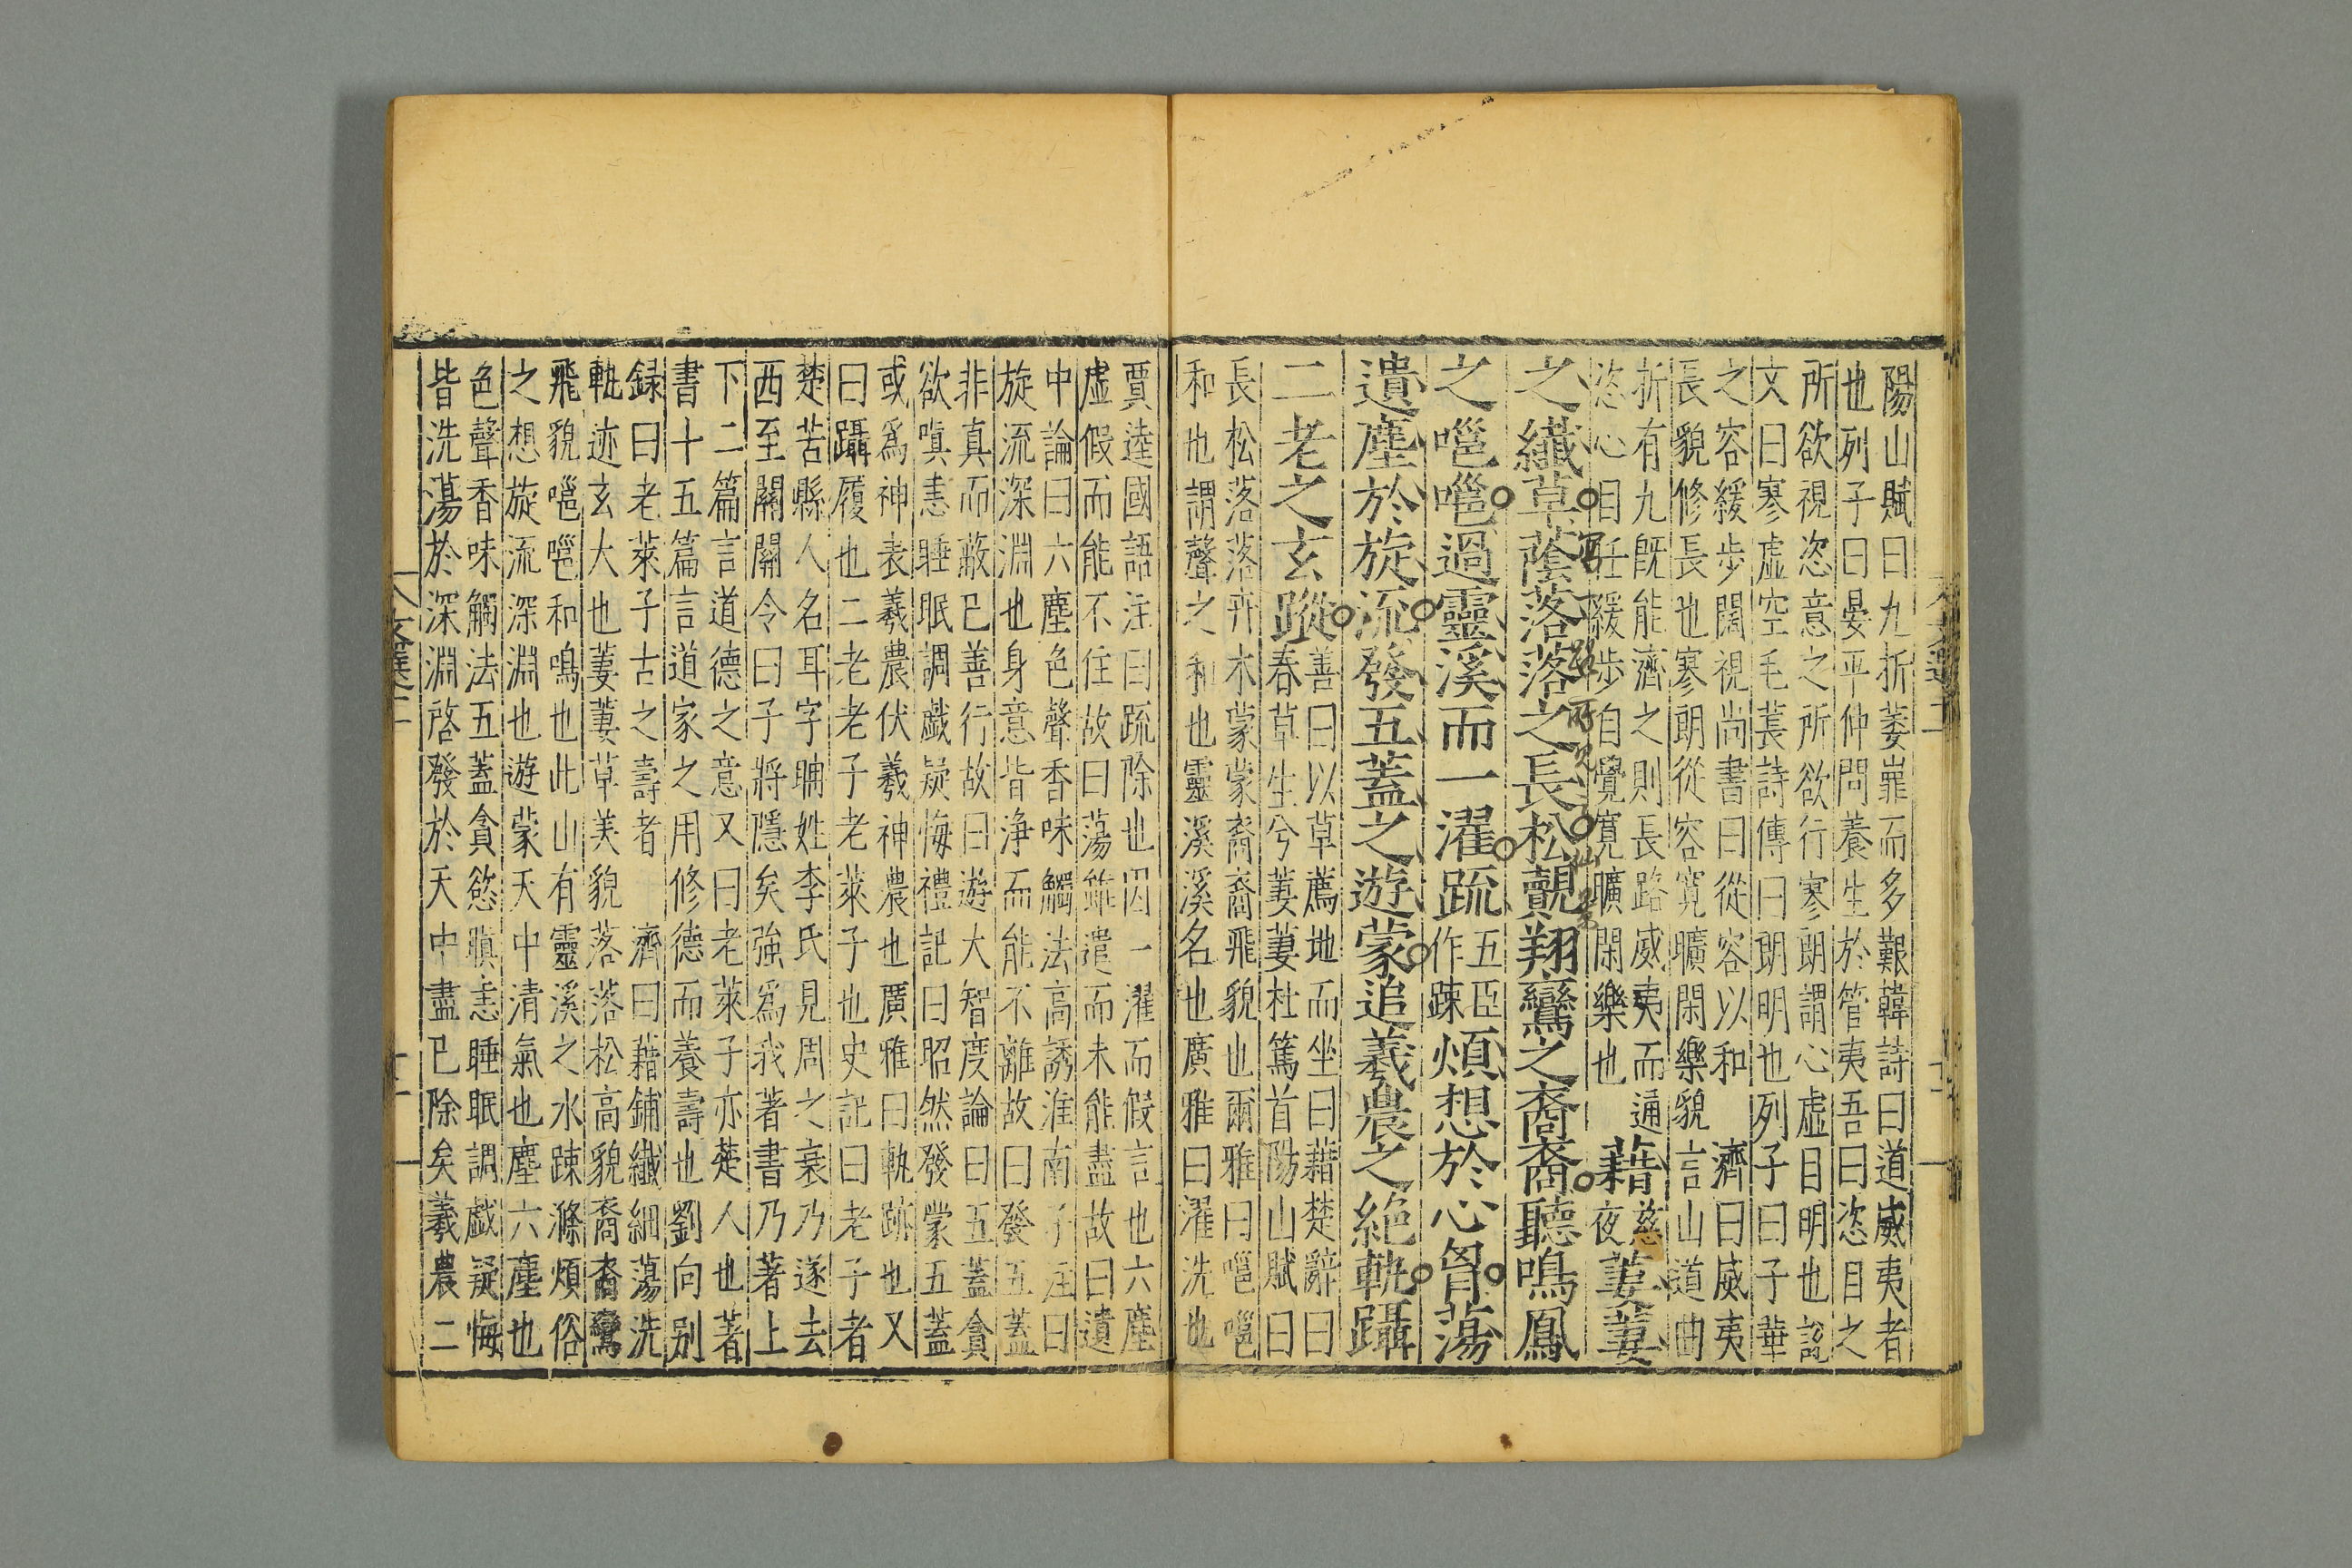 陽山賦曰九折萎嶵而多艱韓詩曰道威夷者
也列子曰晏平仲問養生於管夷吾曰恣目之
所欲視恣意之所欲行寥朗謂心虛目明也說
文曰寥虛空毛萇詩傳曰朗明也列子曰子華
之容緩步闊視尚書曰從容以和 濟曰威夷
長貌修長也寥朗從容寬曠閑樂貌言山道曲
折有九既能濟之則長路威夷而通
恣心目任緩步自覺寬曠閑樂也
藉慈夜萋萋
之纖草蔭落落之長松覿翔鸞之裔裔聽鳴鳳
之嗈嗈過靈溪而一濯疏五臣作踈煩想於心胷蕩
遺塵於旋流發五蓋之遊蒙追羲農之絕軌躡
二老之玄蹤
善曰以草薦地而坐曰藉楚辭曰
春草生兮萋萋杜篤首陽山賦曰
長松落落卉木蒙蒙裔裔飛貌也爾雅曰嗈嗈
和也謂聲之和也靈溪溪名也廣雅曰濯洗也
賈逵國語注曰疏除也因一濯而假言也六塵
虛假而能不住故曰蕩雖遣而未能盡故曰遺
中論曰六塵色聲香味觸法高誘淮南子注曰
旋流深淵也身意皆淨而能不離故曰發五蓋
非真而蔽已善行故曰遊大智度論曰五蓋貪
欲嗔恚睡眠調戲疑悔禮記曰昭然發蒙五蓋
或爲神表羲農伏羲神農也廣雅曰軌跡也又
曰躡履也二老老子老萊子也史記曰老子者
楚苦縣人名耳字聃姓李氏見周之衰乃遂去
西至關關令曰子將隱矣強爲我著書乃著上
下二篇言道德之意又曰老萊子亦楚人也著
書十五篇言道家之用修德而養壽也劉向别
録曰老萊子古之壽者 濟曰藉鋪纖細蕩洗
軌迹玄大也萋萋草美貌落落松高貌裔裔鸞
飛貌嗈嗈和鳴也此山有靈溪之水踈滌煩俗
之想旋流深淵也遊蒙天中清氣也塵六塵也
色聲香味觸法五蓋貪慾嗔恚睡眠調戲疑悔
皆洗蕩於深淵啓發於天中盡已除矣羲農二